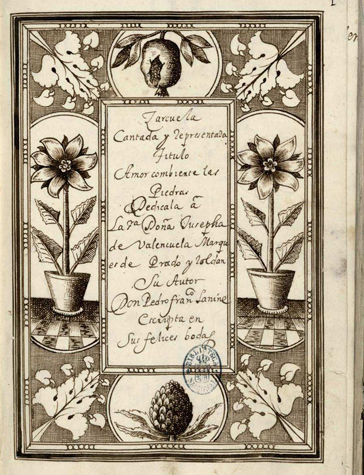 Zarcuela
Cantada y Representada
Titulo
Amor combierte las
Piedras
Dedicala a
La Sa Doña Jusepha
de Valencuela Marqu
es de Prado y Roldan
Su Autor
Don Pedro franco Lanine
Escripta en
Sus felices bodas